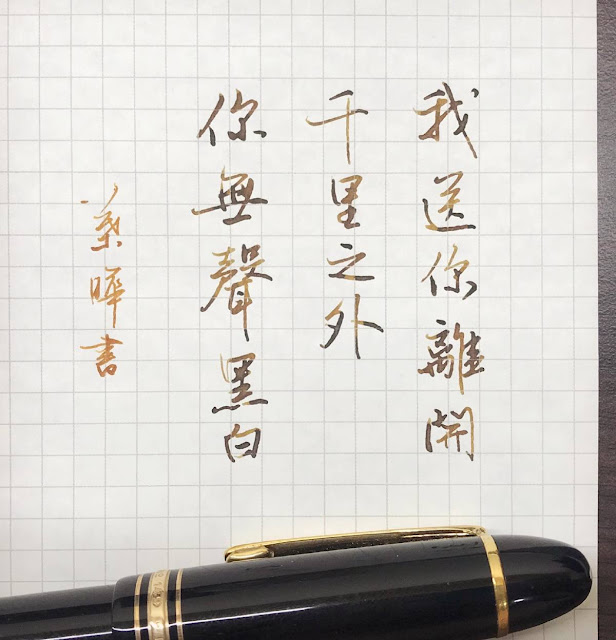 我送你離開
千里之外
你無聲黑白
葉曄書